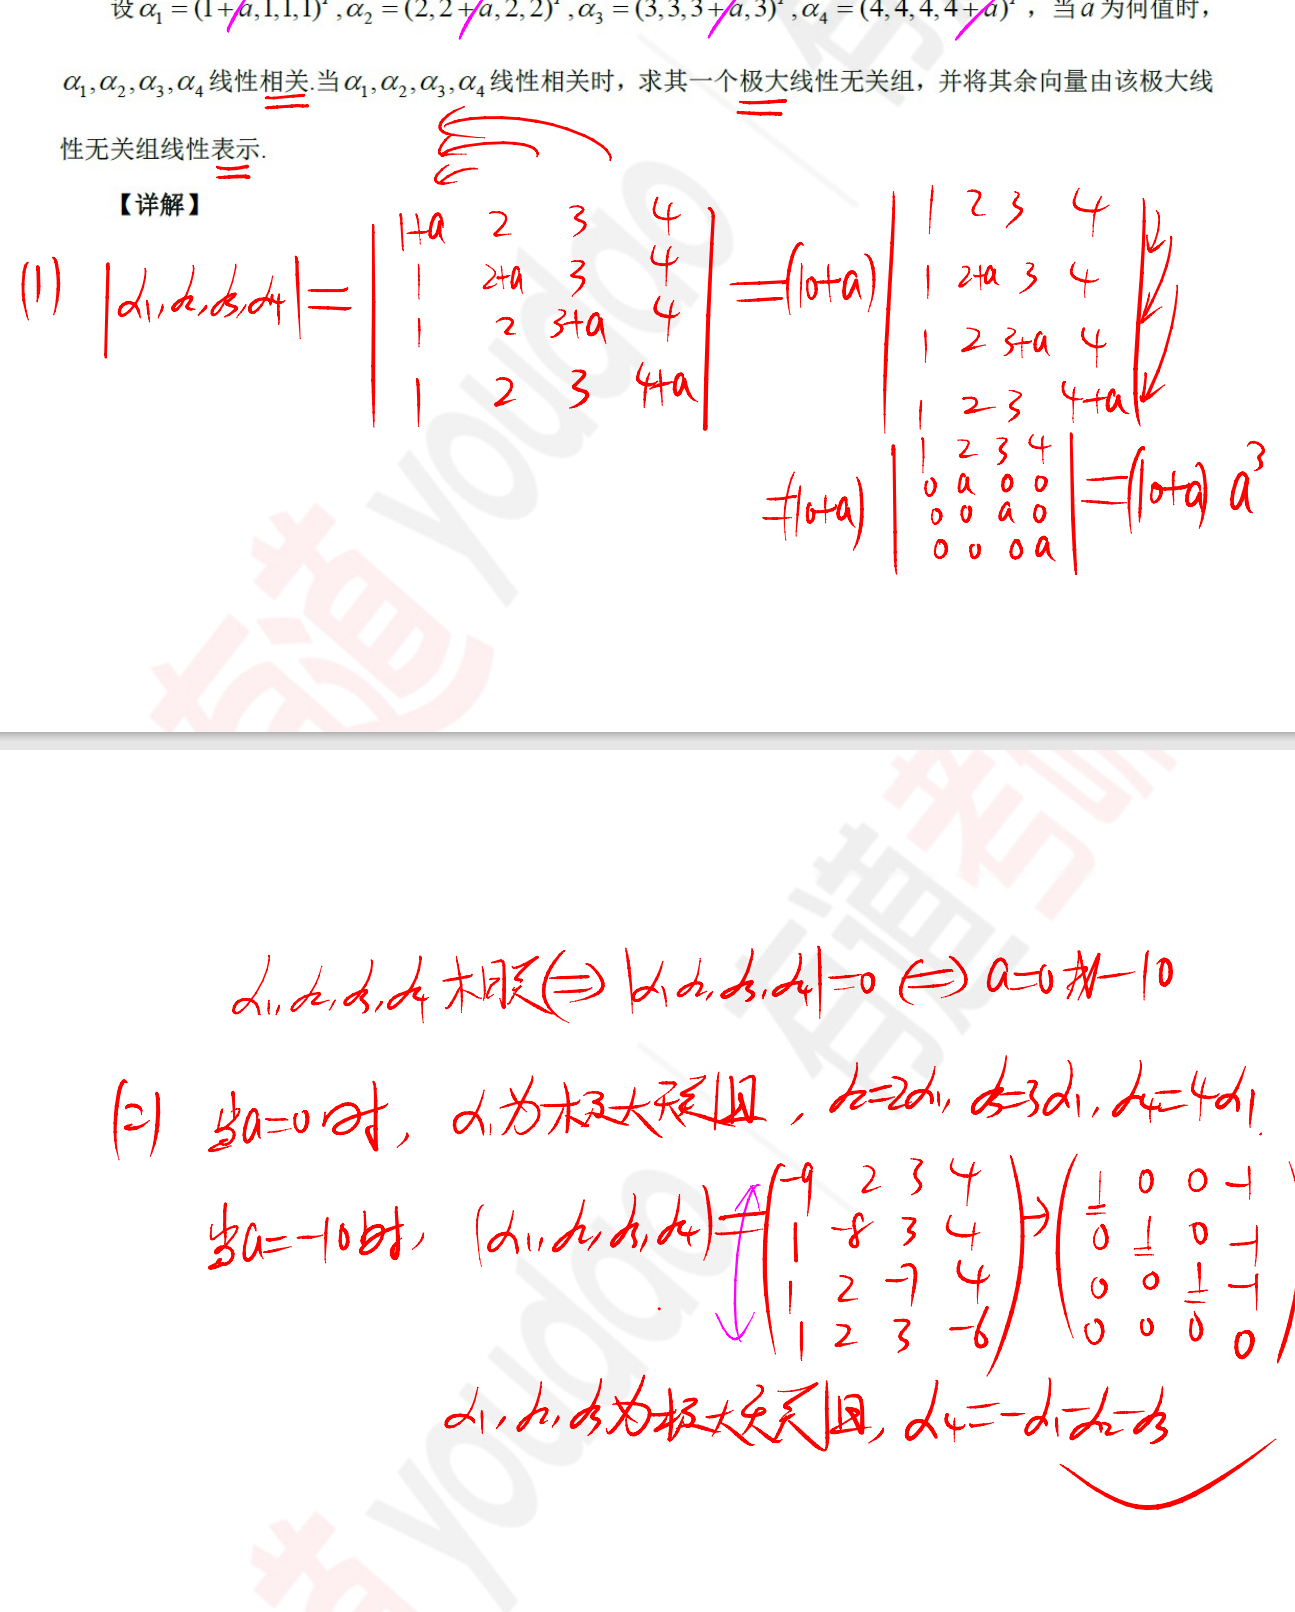 设 α₁ = (1+a,1,1,1)ᵀ, α₂ = (2,2+a,2,2)ᵀ, α₃ = (3,3,3+a,3)ᵀ, α₄ = (4,4,4,4+a)ᵀ，当 a 为何值时，
α₁,α₂,α₃,α₄ 线性相关.当 α₁,α₂,α₃,α₄ 线性相关时，求其一个极大线性无关组，并将其余向量由该极大线
性无关组线性表示.
【详解】
(1) |α₁,α₂,α₃,α₄| = | 1+a 2 3 4 | = (10+a) | 1 2 3 4 |
| 1 2+a 3 4 | | 1 2+a 3 4 |
| 1 2 3+a 4 | | 1 2 3+a 4 |
| 1 2 3 4+a | | 1 2 3 4+a |
= (10+a) | 1 2 3 4 | = (10+a) a³
| 0 a 0 0 |
| 0 0 a 0 |
| 0 0 0 a |
α₁,α₂,α₃,α₄ 相关 ⇔ |α₁,α₂,α₃,α₄| = 0 ⇔ a=0 或 -10
(2) 当 a=0 时, α₁为极大无关组, α₂=2α₁, α₃=3α₁, α₄=4α₁.
当 a=-10 时, (α₁,α₂,α₃,α₄) = ( -9 2 3 4 ) → ( 1 0 0 -1 )
( 1 -8 3 4 ) ( 0 1 0 -1 )
( 1 2 -7 4 ) ( 0 0 1 -1 )
( 1 2 3 -6 ) ( 0 0 0 0 )
α₁,α₂,α₃为极大无关组, α₄=-α₁-α₂-α₃
有道 youdao
有道考研
有道 youdao